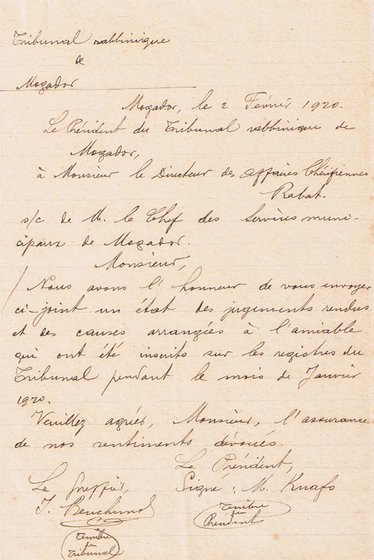 Tribunal rabbinique
de
Mogador
Mogador, le 2 Février 1920.
Le Président du Tribunal rabbinique de
Mogador,
à Monsieur le Directeur des affaires Chérifiennes
Rabat.
s/c de M. le Chef des Services muni-
cipaux de Mogador.
Monsieur,
Nous avons l'honneur de vous envoyer
ci-joint un état des jugements rendus
et des causes arrangées à l'amiable
qui ont été inscrits sur les registres du
Tribunal pendant le mois de Janvier
1920.
Veuillez agréer, Monsieur, l'assurance
de nos sentiments dévoués.
Le Président,
Le greffier,
Signé : M. Knafo
J. Benchimol
Timbre
du
Président
Timbre
du
Tribunal